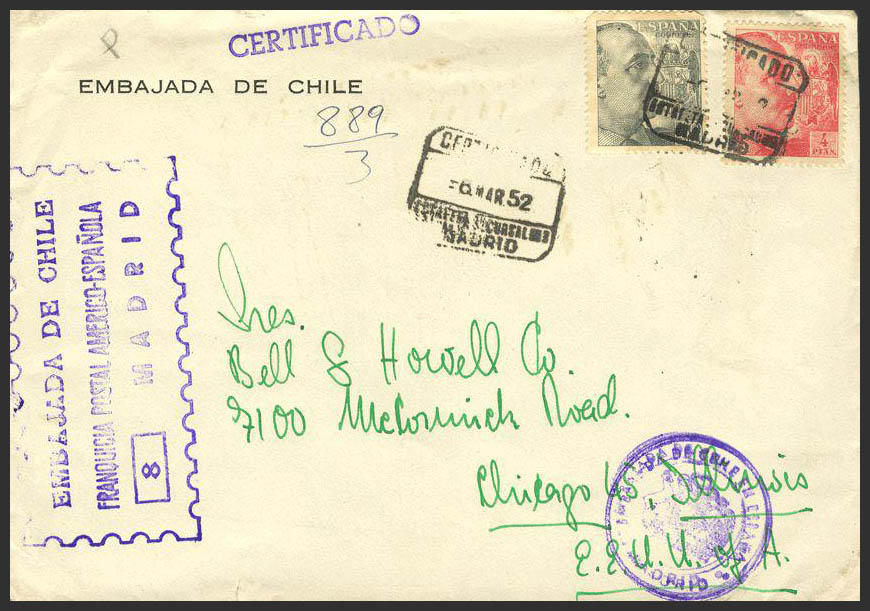 CERTIFICADO
EMBAJADA DE CHILE
889
3
ESPAÑA
CORREOS
ESPAÑA
4
PTAS
CERTIFICADO
MADRID
CERTIFICADO
-6 MAR. 52
ESTAFETA SUCURSAL
MADRID
EMBAJADA DE CHILE
FRANQUICIA POSTAL AMERICO-ESPAÑOLA
MADRID
8
Sres.
Bell & Howell Co.
7100 McCormick Road.
Chicago 45, Illinois
E.E.U.U. of A.
EMBAJADA DE CHILE EN ESPAÑA
MADRID